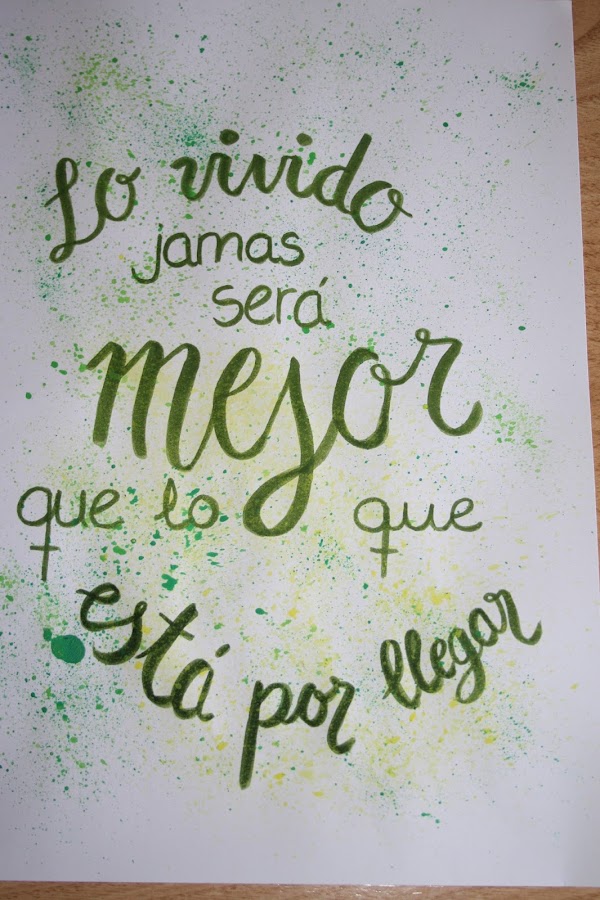 Lo vivido
jamas
será
mejor
que lo que
está por llegar